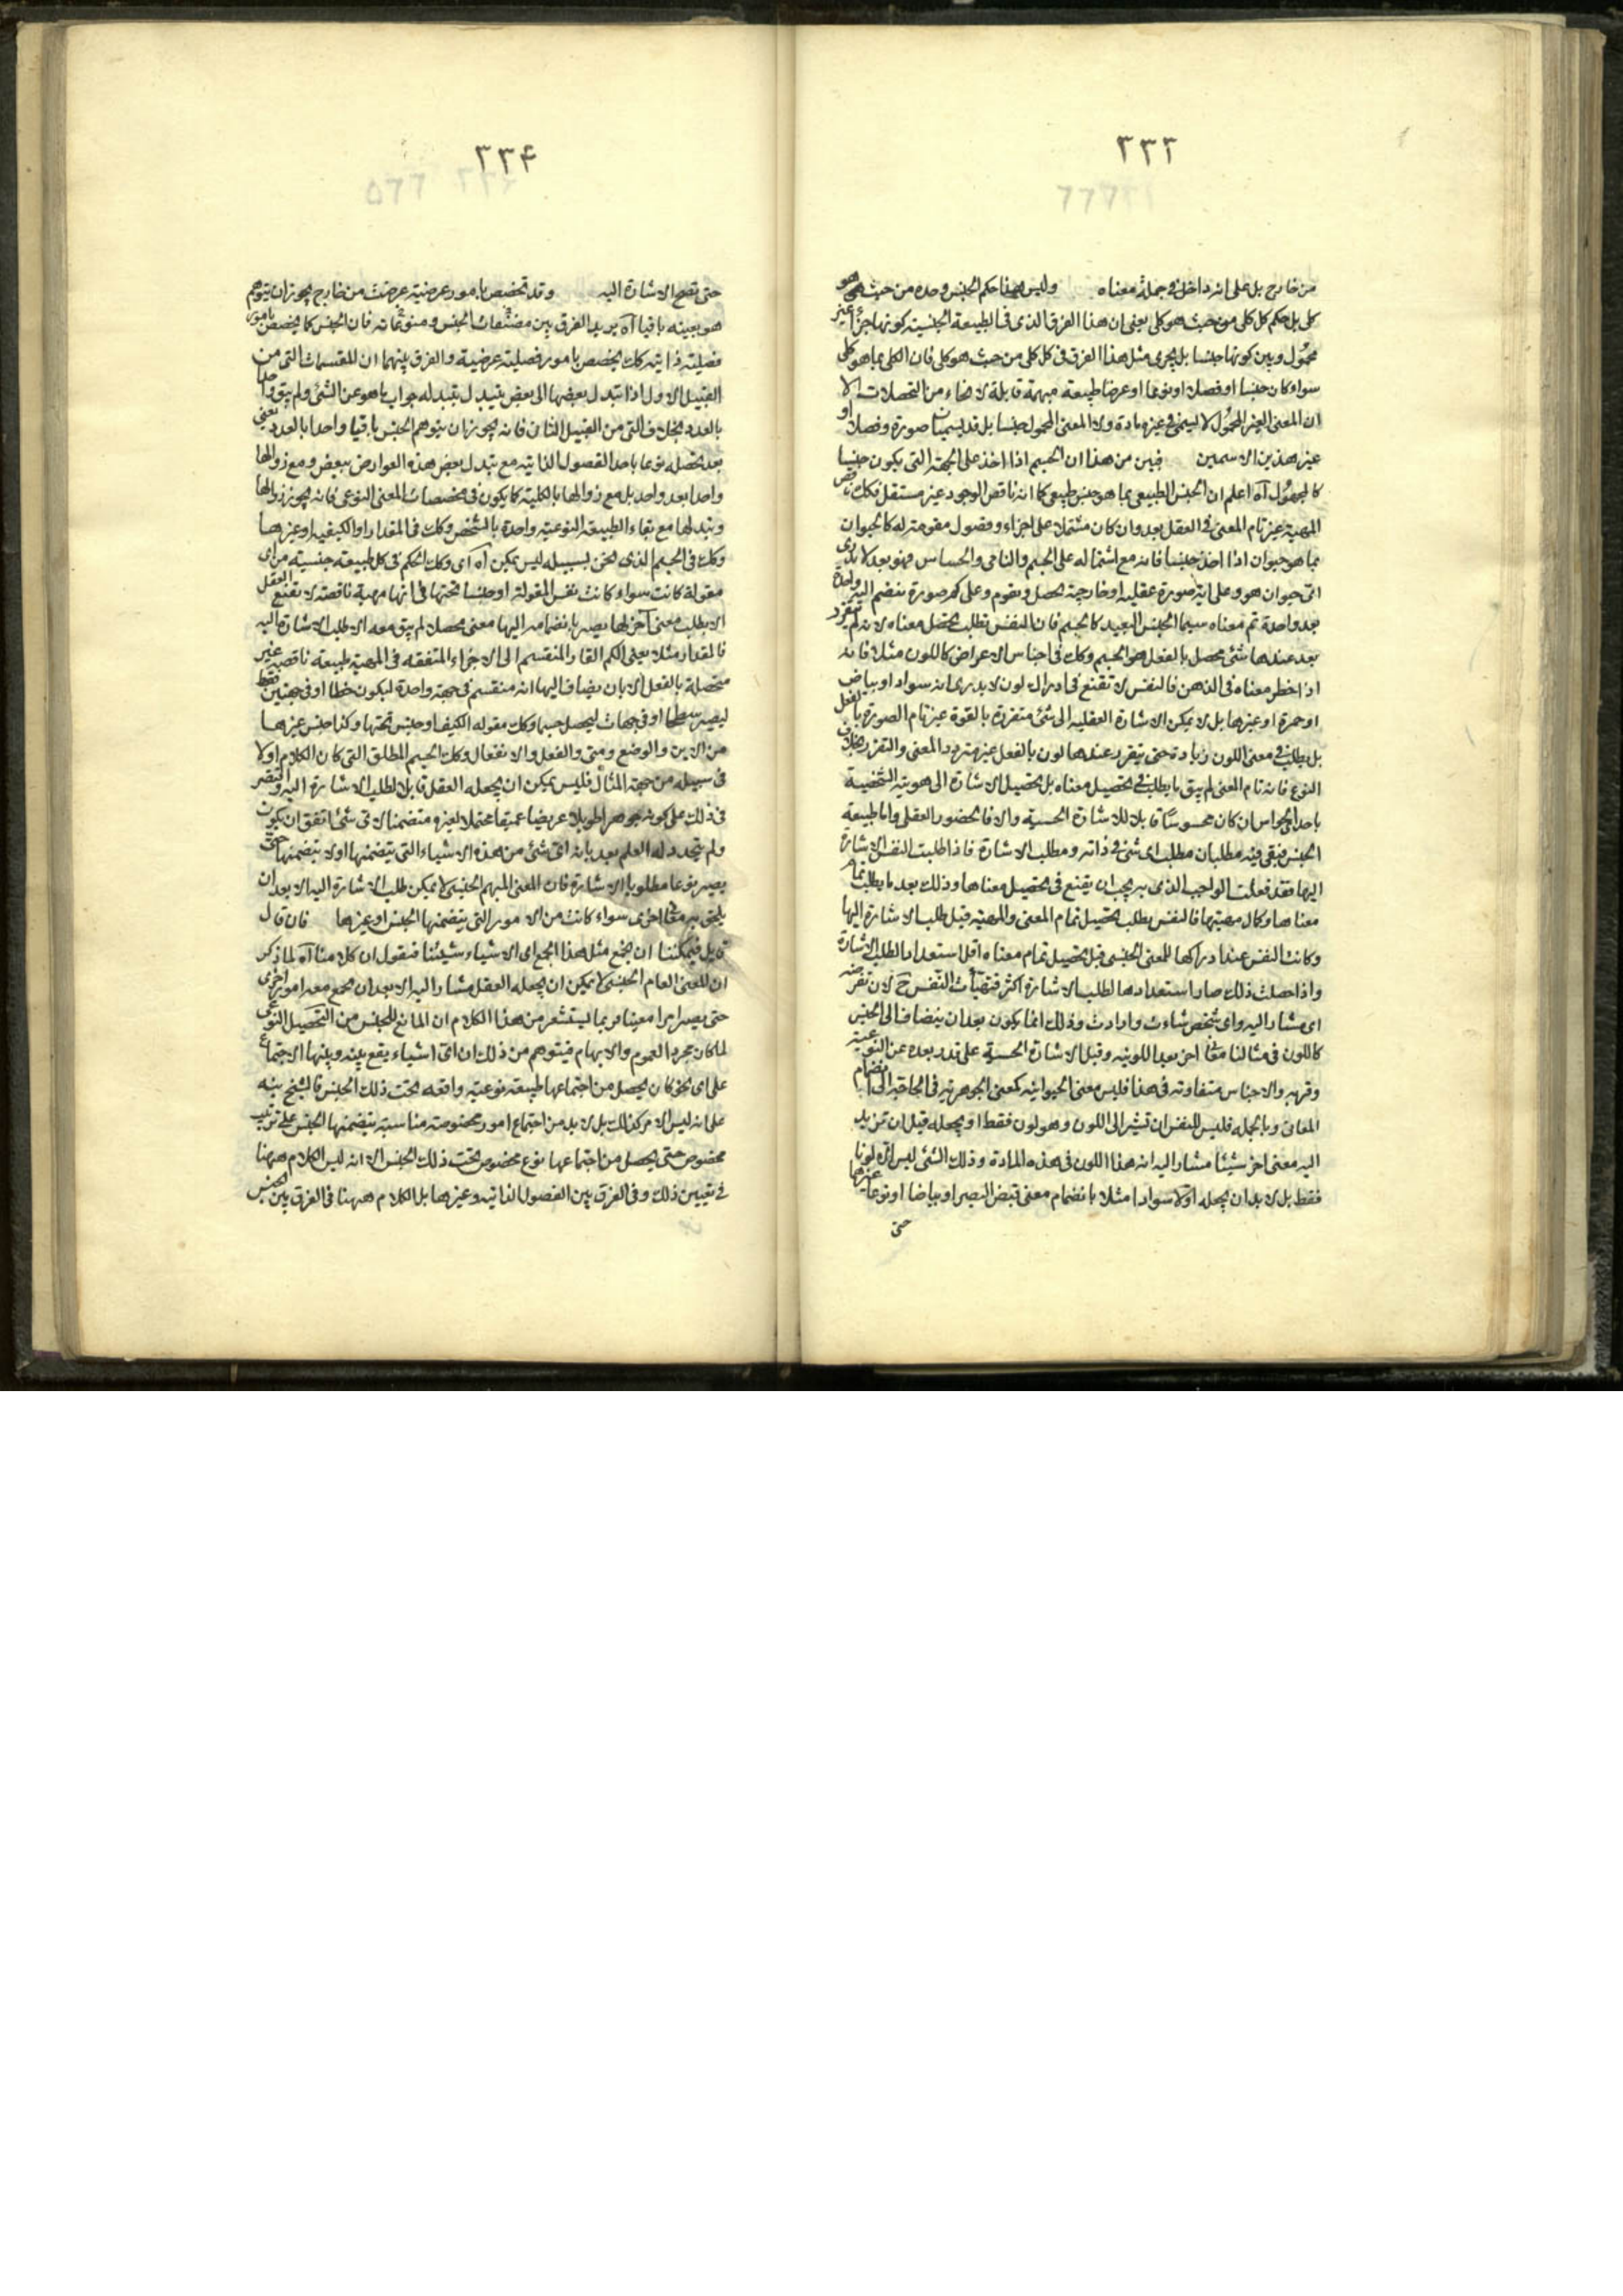 ٢٣٣
من خارج بل على انه داخل فى جملة معناه وليس هذا حكم الجنس وحده من حيث هو
كلى بل حكم كل كلى من حيث هو كلى يعنى ان هذا الفرق الذى فى الطبيعة الجنسية كونها جزءا غير
محمول وبين كونها جنسا بل يجرى مثل هذا الفرق فى كل كلى من حيث هو كلى فان الكلى بما هو كلى
سواء كان جنسا او فصلا او نوعا او عرضا طبيعة مبهمة قابلة لانحاء من التحصلات الا
ان المعنى الغير المحمول لا يسمى فى غيره مادة ولا المعنى المحمول جنسا بل قد يسميان صورة وفصلا او
غير هذين الاسمين فبين من هذا ان الجسم اذا اخذ على الجهة التى يكون جنسا
كالمجهول آه اعلم ان الجنس الطبيعى بما هو جنس طبيعى كما انه ناقص الوجود غير مستقل فكك ناقص
المهية غير تام المعنى فى العقل بعد وان كان مشتملا على اجزاء وفصول مقومة له كالحيوان
بما هو حيوان اذا اخذ جنسا فانه مع اشتماله على الجسم والنامى والحساس فهو بعد لا يدرى
اى حيوان هو وعلى اية صورة عقلية او خارجية يحصل ويقوم وعلى كم صورة ينضم اليه واحدة
بعد واحدة تم معناه سيما الجنس البعيد كالجسم فان النفس تطلب تحصل معناه لانه لم يتقرر
بعد عندها شئ محصل بالفعل هو الجسم وكك فى اجناس الاعراض كاللون مثلا فانه
اذا خطر معناه فى الذهن فالنفس لا تقنع فى ادراك لون لا يدرى انه سواد او بياض
او حمرة او غيرها بل لا يمكن الاشارة العقلية الى شئ متقررة بالقوة غير تام الصورة بالفعل
بل يطلب فى معنى اللون زيادة حتى يتقرر عندها لون بالفعل غير متردد المعنى والتقرر بخلاف
النوع فانه تام المعنى لم يبق ما يطلب فى تحصيل معناه بل تحصيل الاشارة الى هويته الشخصية
باحدى الحواس ان كان محسوسا قابلا للاشارة الحسية والا فالحضور العقلى واما طبيعة
الجنس فبقى فيه مطلبان مطلب اى شئ فى ذاته ومطلب الاشارة فاذا طلبت النفس الاشارة
اليها فقد فعلت الواجب الذى به يجب ان يقنع فى تحصيل معناها وذلك بعد ما يطلب تمام
معناها وكمال مهيتها فالنفس يطلب تحصيل تمام المعنى والمهية قبل طلب الاشارة اليها
وكانت النفس عند ادراكها للمعنى الجنسى قبل تحصيل تمام معناه اقل استعدادا لطلب الاشارة
واذا حصلت ذلك صار استعدادها لطلب الاشارة اكثر فتهيأت النفس ح لان تفرضه
اى مشار اليه واى شخص شاءت وارادت وذلك انما يكون بعد ان ينضاف الى الجنس
كاللون فى مثالنا معان اخر بعد اللونية وقبل الاشارة الحسية على قدر بعده عن النوعية
وقربه والاجناس متفاوته فى هذا فليس معنى الحيوانية كمعنى الجوهرية فى الحاجة الى انضمام
المعانى وبالجمله فليس للنفس ان تشير الى اللون وهو لون فقط او يجعله قبل ان تزيد
اليه معنى اخر شيئا مشار اليه انه هذا اللون فى هذه المادة وذلك الشئ ليس الا لونا
فقط بل لا بد ان يجعله اولا سوادا مثلا بانضمام معنى قبض البصر او بياضا او نوعا غيرها
حتى
٢٣۴
حتى تصح الاشارة اليه وقد تخصص بامور عرضية عرضت من خارج يجوز ان يتوهم
هو بعينه باقيا آه يريد الفرق بين مصنفات الجنس ومنوعاته فان الجنس كما يتخصص بامور
فصلية ذاتية كك يتخصص بامور فصلية عرضية والفرق بينهما ان المقسمات التى من
القبيل الاول اذا تبدل بعضها الى بعض يتبدل بتبدله جواب ما هو عن الشئ ولم يبق واحدا
بالعدد بخلاف التى من القبيل الثانى فانه يجوز ان يتوهم الجنس باقيا واحدا بالعدد يعنى
بعد تحصله نوعا باحد الفصول الذاتية مع تبدل بعض هذه العوارض ببعض ومع زوالها
واحدا بعد واحد بل مع زوالها بالكلية كما يكون فى مخصصات المعنى النوعى فانه يجوز زوالها
وتبدلها مع بقاء الطبيعة النوعية واحدة بالشخص وكك فى المقدار او الكيفية او غيرها
وكك فى الجسم الذى نحن بسبيله ليس يمكن آه اى وكك الحكم فى كل طبيعة جنسية من اى
مقولة كانت سواء كانت نفس المقولة او جنسا تحتها فى انها مهية ناقصة لا تقنع العقل
الا بطلب معنى آخر لها يصير بانضمامه اليها معنى محصلا لم يبق معه الا طلب الاشارة اليه
فالمقدار مثلا يعنى الكم القار المنقسم الى الاجزاء المتفقة فى المهية طبيعة ناقصة غير
متحصلة بالفعل الا بان يضاف اليها انه منقسم فى جهة واحدة ليكون خطا او فى جهتين فقط
ليصير سطحا او فى جهات ليحصل جسما وكك مقوله الكيف او جنس تحتها وكذا جنس غيرها
من الاين والوضع ومتى والفعل والانفعال وكك الجسم المطلق التى كان الكلام اولا
فى سبيله من جهة المثال فليس يمكن ان يجعله العقل قابلا لطلب الاشارة اليه واقتصر
فى ذلك على كونه جوهرا طويلا عريضا عميقا محتملا لغيره متضمنا لاى شئ اتفق ان يكون
ولم يتجدد له العلم بعد بانه اى شئ من هذه الاشياء التى يتضمنها اولا يتضمنها حتى
يصير نوعا مطلوبا بالاشارة فان المعنى المبهم الجنسى لا يمكن طلب الاشارة اليه الا بعد ان
يلحق به معان اخرى سواء كانت من الامور التى يتضمنها الجنس او غيرها فان قال
قايل فيمكننا ان نجمع مثل هذا الجمع اى الاشياء شيئا فنقول ان كلامنا آه لما ذكر
ان المعنى العام الجنسى لا يمكن ان يجعله العقل مشار اليه الا بعد ان يجمع معه امور اخرى
حتى يصير امرا معينا فربما يستشعر من هذا الكلام ان المانع للجنس من التحصيل النوعى
لما كان مجرد العموم والابهام فيتوهم من ذلك ان اى اشياء يقع بينه وبينها الاجتماع
على اى نحو كان يحصل من اجتماعها طبيعة نوعية واقعه تحت ذلك الجنس فالشيخ نبه
على انه ليس الامر كذلك بل لا بد من اجتماع امور مخصوصة مناسبة يتضمنها الجنس على ترتيب
مخصوص حتى يحصل من اجتماعها نوع مخصوص تحت ذلك الجنس الا انه ليس الكلام ههنا
فى تعيين ذلك وفى الفرق بين الفصول الذاتية وغيرها بل الكلام ههنا فى الفرق بين الجنس